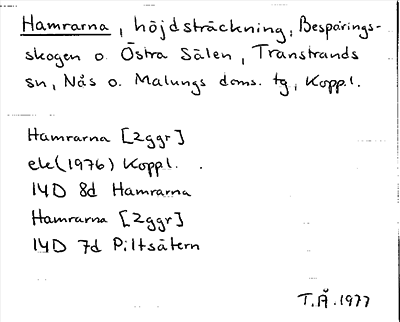 Hamrarna, höjdsträckning, Besparings-
skogen o. Östra Sälen, Transtrands
sn, Nås o. Malungs doms. tg, Koppl.
Hamrarna [2ggr]
ek (1976) Koppl.
14D 8d Hamrarna
Hamrarna [2ggr]
14D 7d Piltsätern
T.Å. 1977